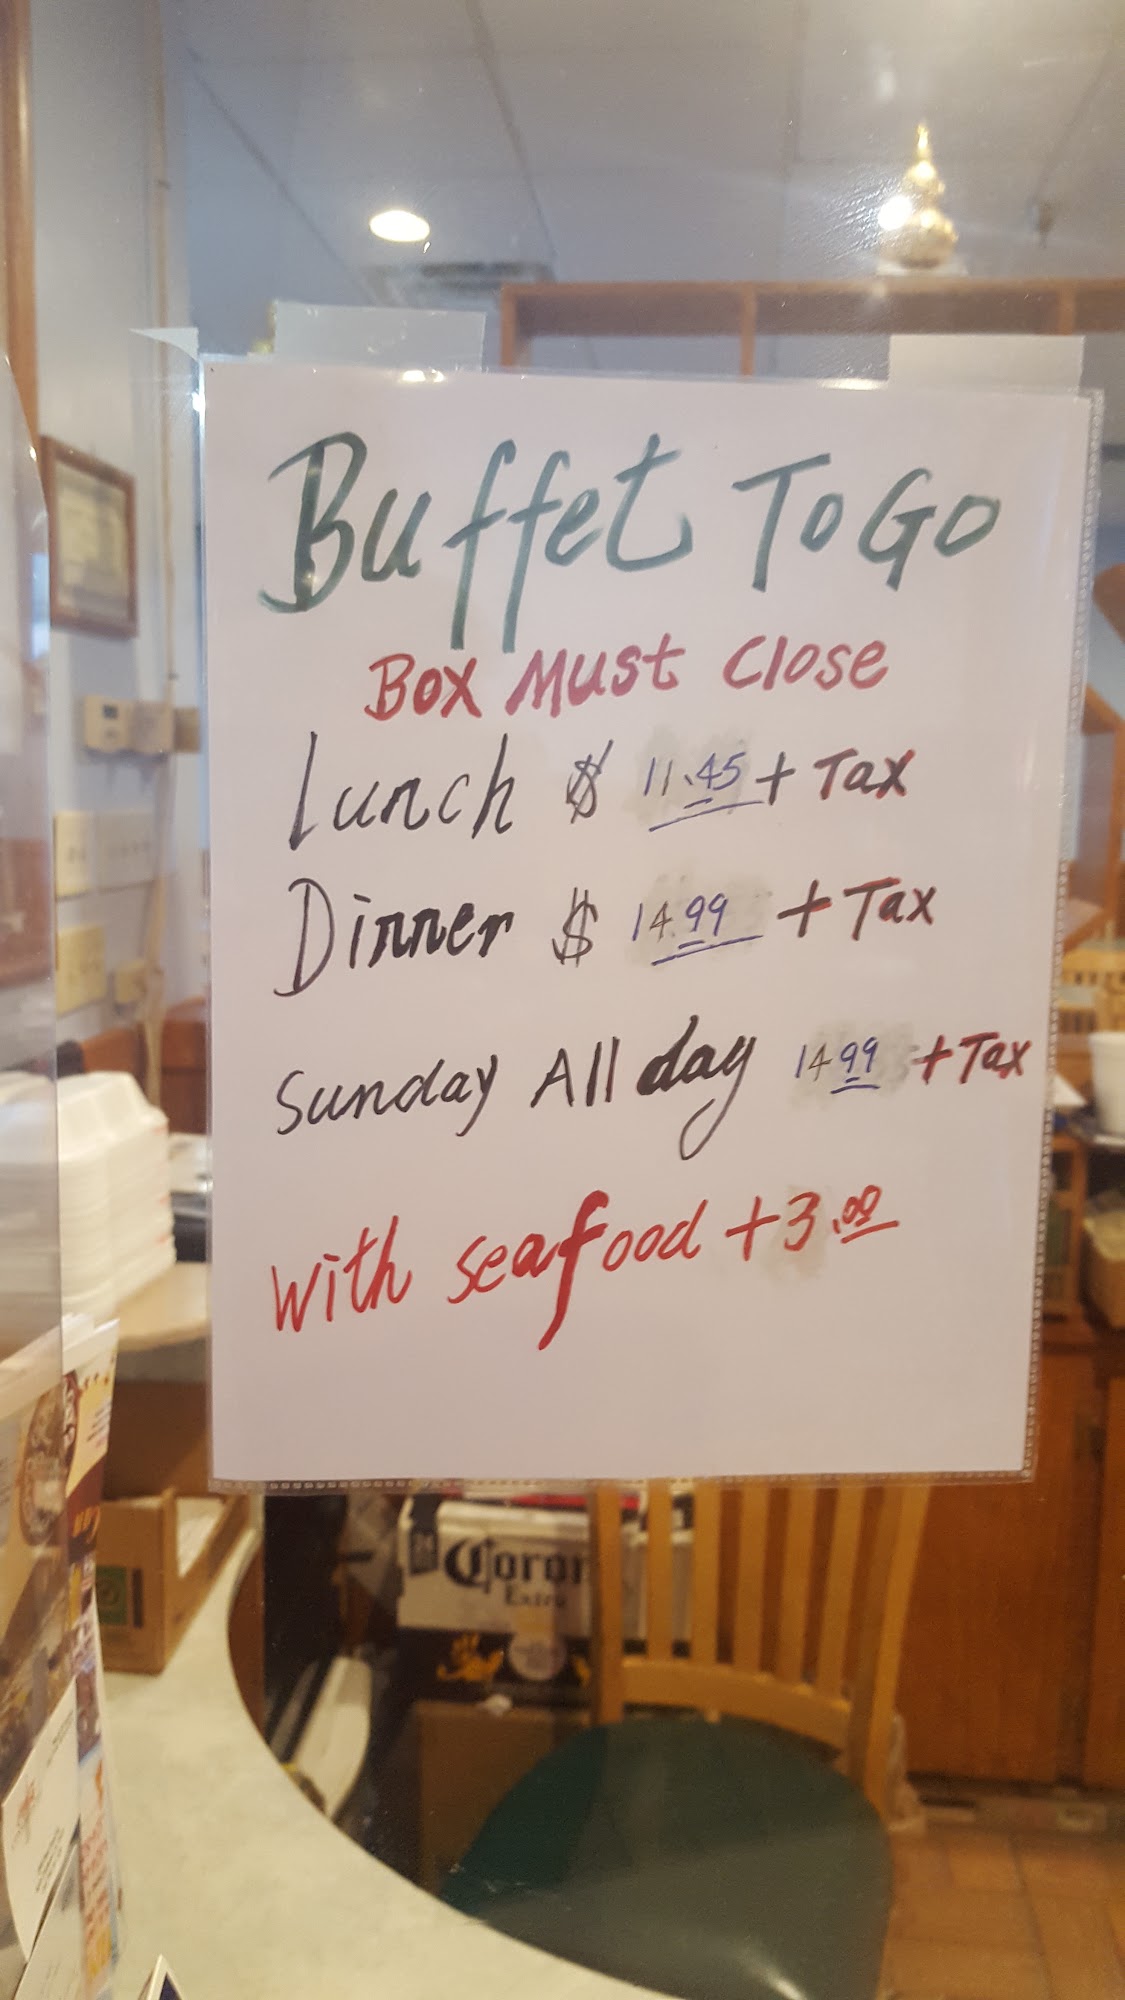 Buffet To GO
Box Must Close
Lunch $ 11.45 + Tax
Dinner $ 14.99 + Tax
Sunday All day 14 99 + Tax
with seafood +3.00
Coron
Extra